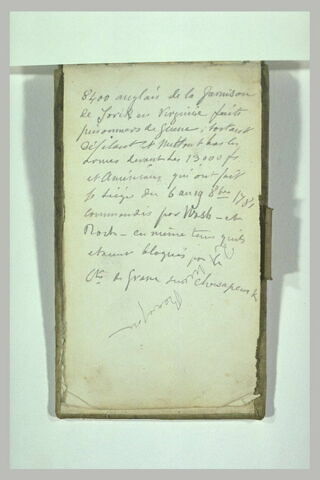 8400 anglais de la garnison
de York en Virginie faits
prisonniers de guerre, sortant
défilant et mettant bas les
armes devant les 13000 fr
et Américains qui ont fait
le siège du 6 au 19 8bre 178
commandés par Wash- et
Roch- en même tems qu'ils
étaient bloqués par le
Cte de Grasse sur Chesapeack